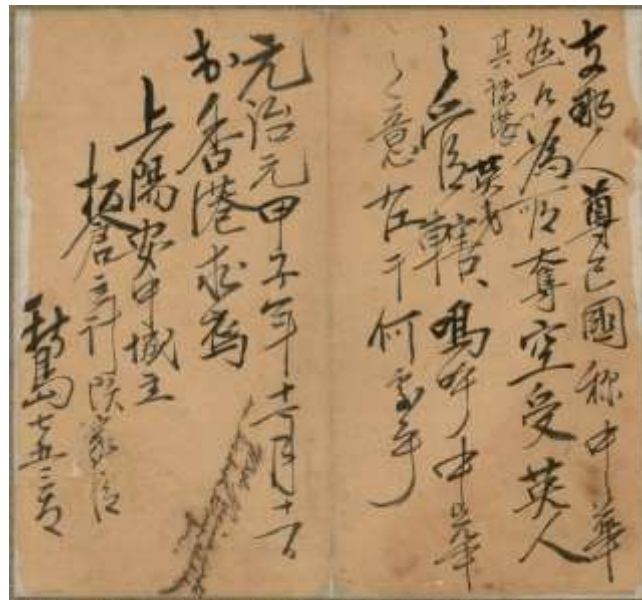 支那人尊己國称中華
然只為所奪空受英人
其諸港
之管轄、嗚呼中華
之意在于何處乎
元治元甲子年十一月十一日
於香港求焉
上陽安中城主
板倉主計頭家臣
新島七五三太